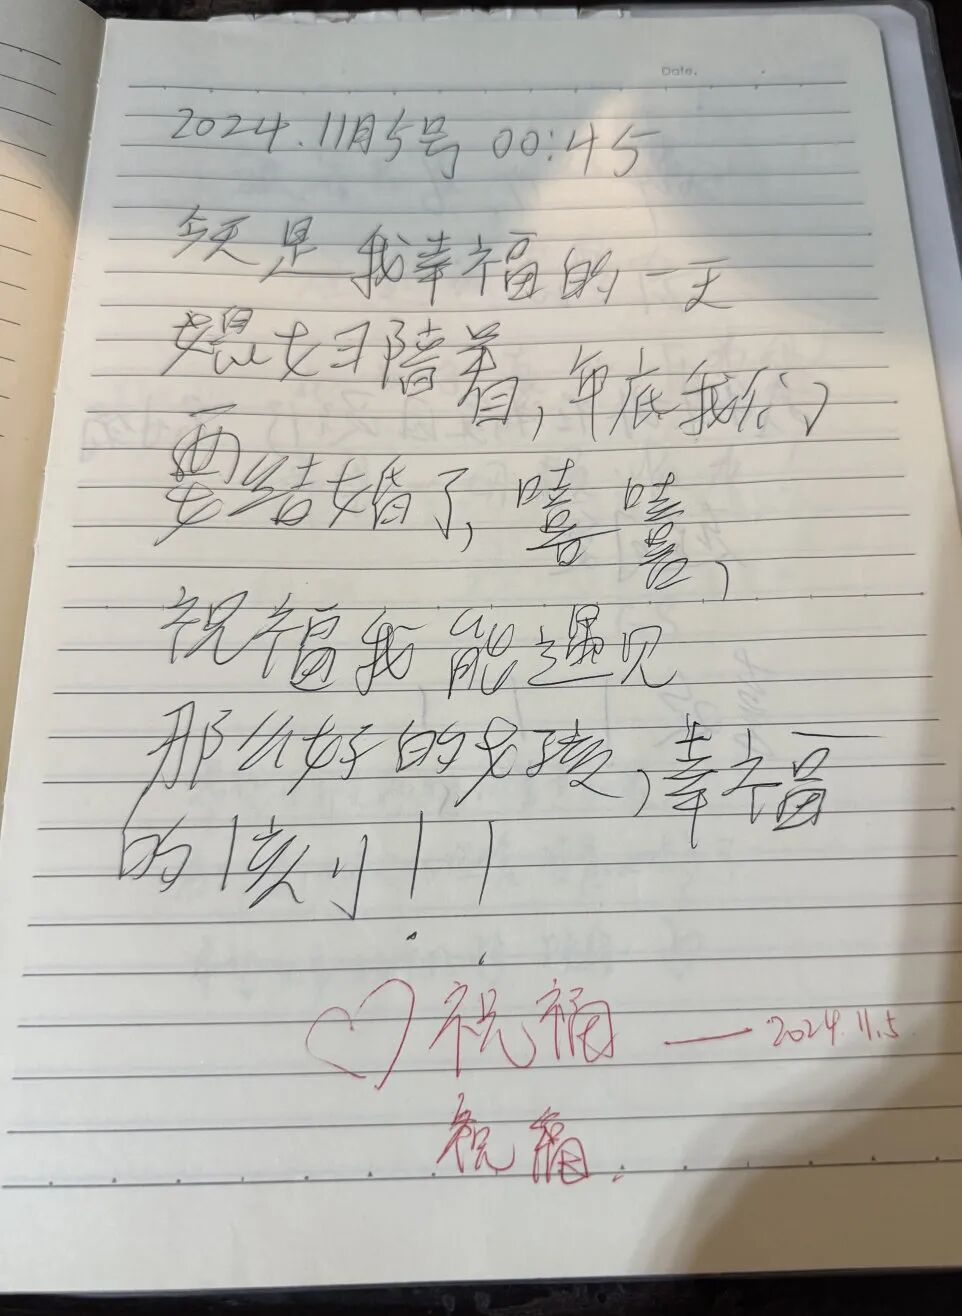 Date.
2024.11月5号 00:45
今天是我幸福的一天
媳妇陪着,年底我们
要结婚了,嘻嘻,
祝福我能遇见
那么好的女孩,幸福
的一刻!!
♡祝福 —— 2024.11.5
祝福.